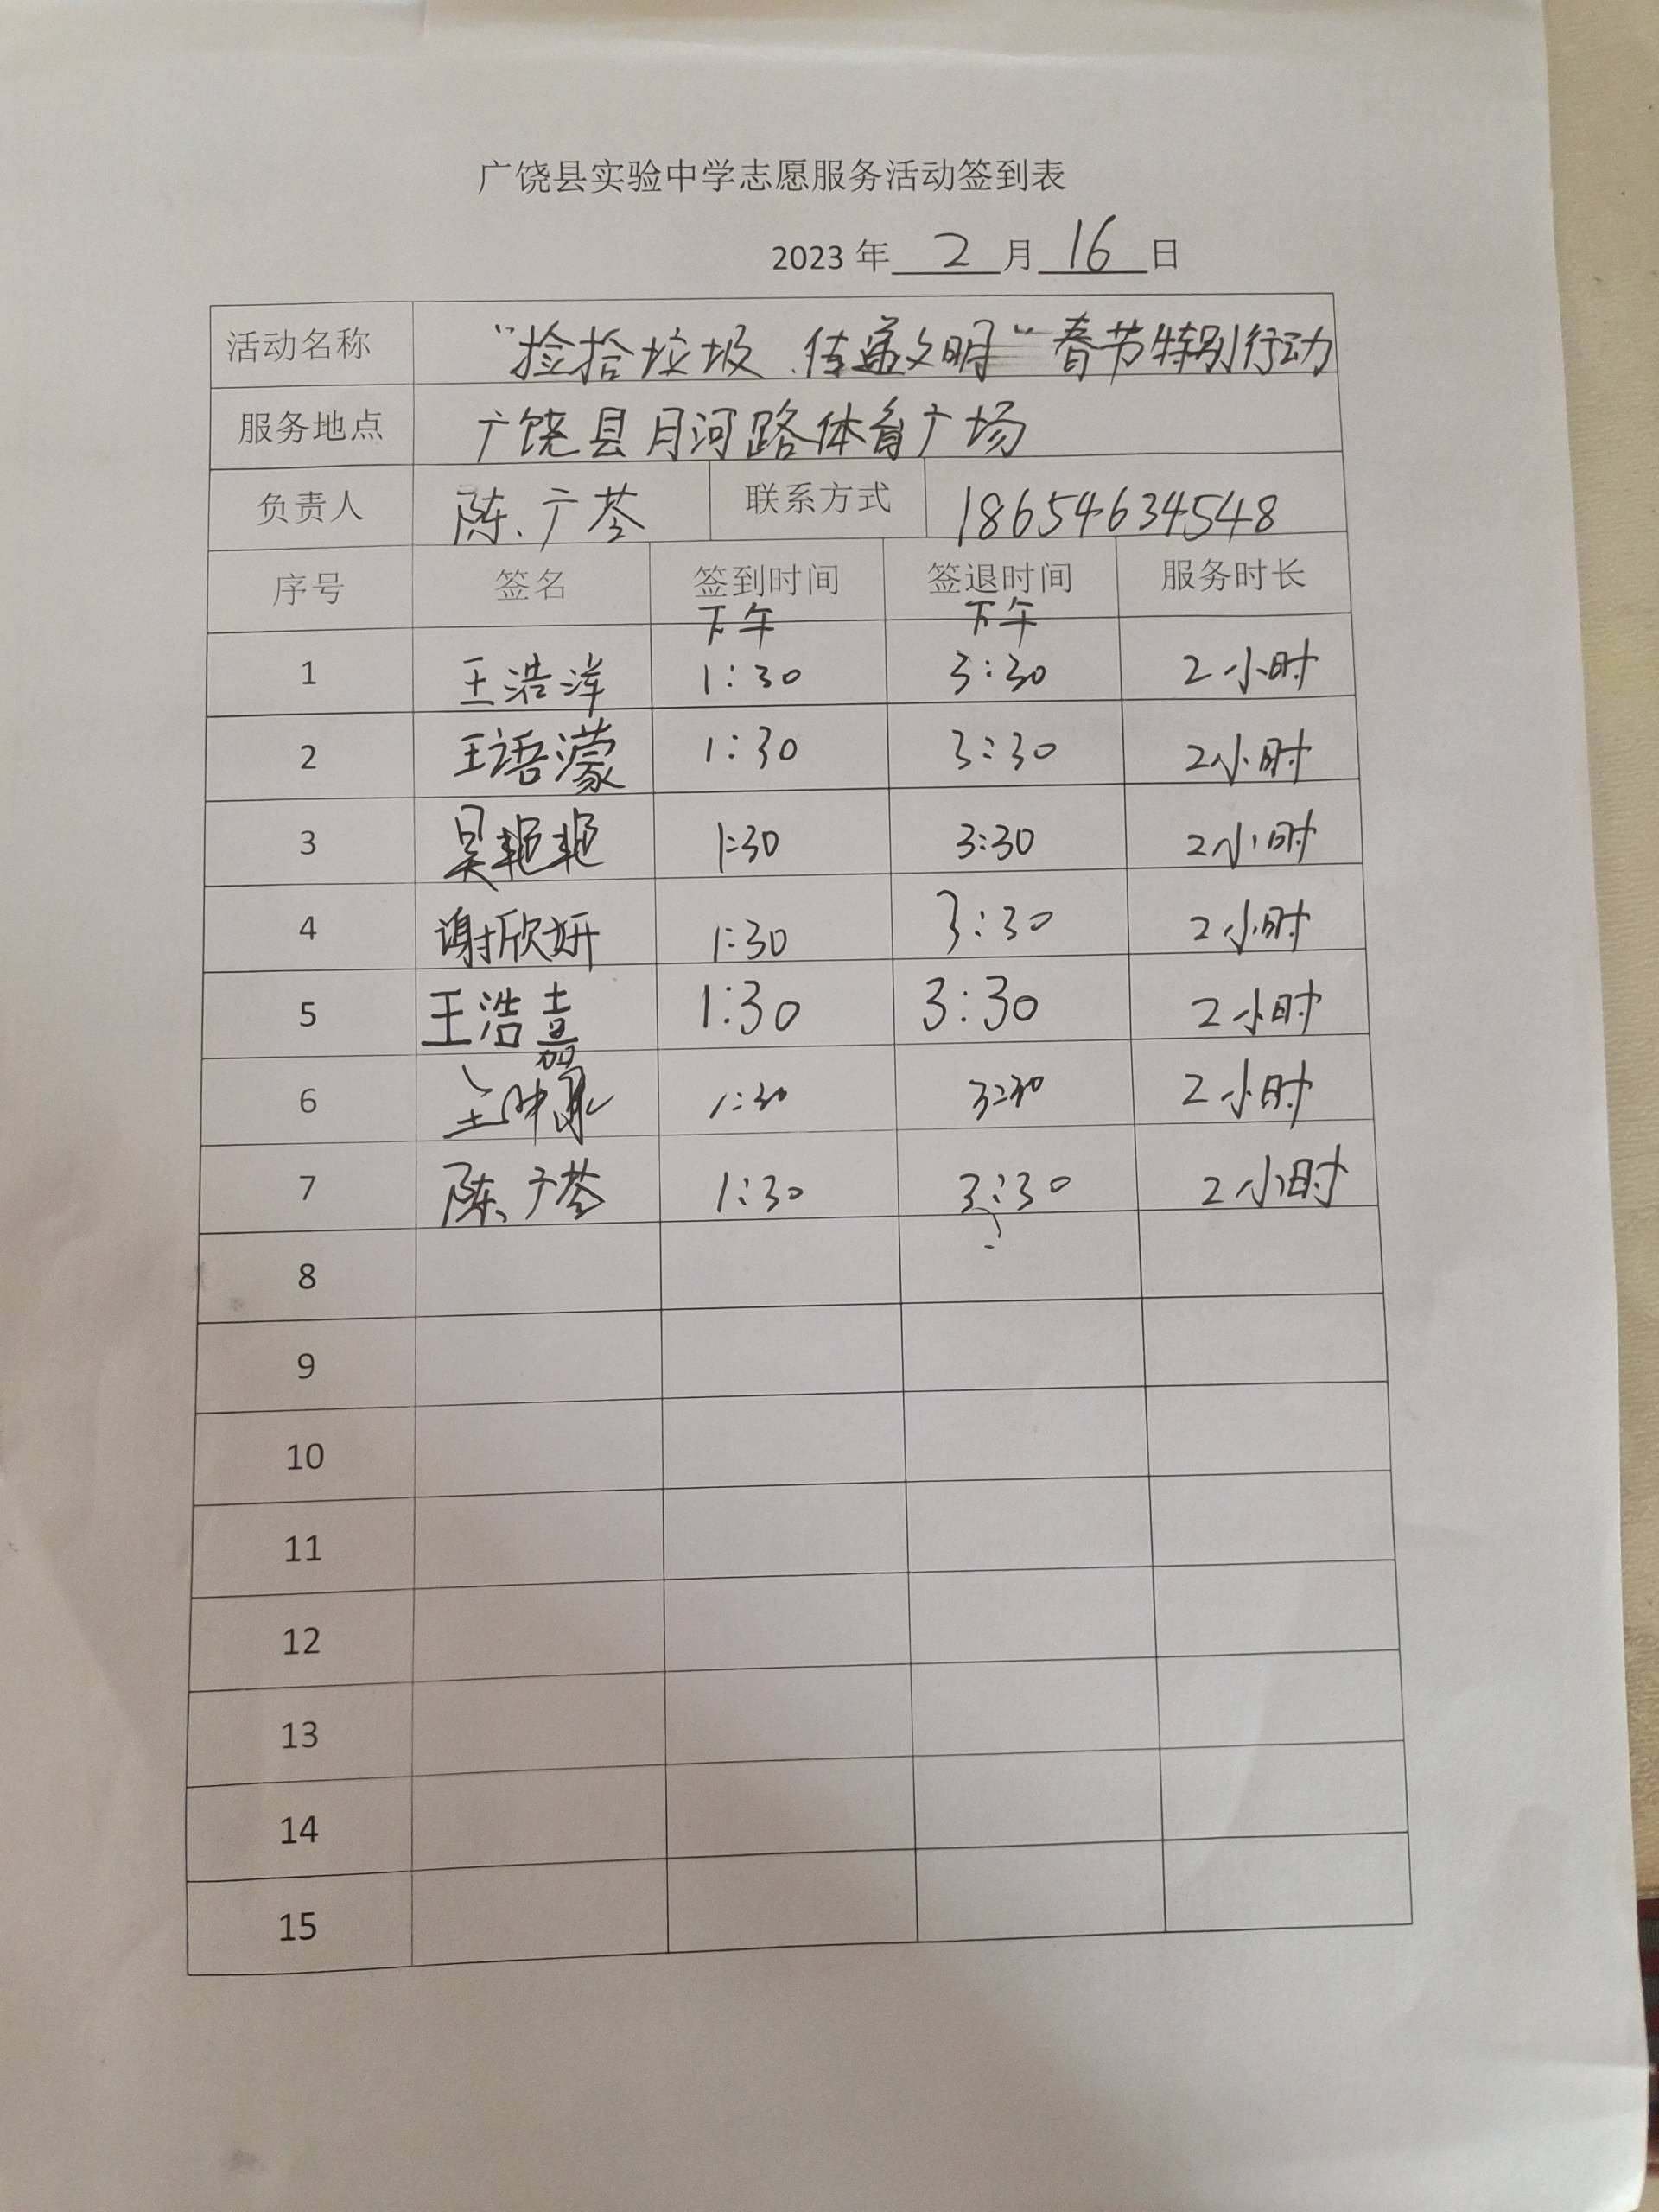 广饶县实验中学志愿服务活动签到表
2023 年 2 月 16 日
活动名称 "捡拾垃圾、传递文明"春节特别行动
服务地点 广饶县月河路体育广场
负责人 陈广苓 联系方式 18654634548
序号 签名 签到时间 签退时间 服务时长
下午 下午
1 王浩洋 1:30 3:30 2小时
2 王语濛 1:30 3:30 2小时
3 吴艳艳 1:30 3:30 2小时
4 谢欣妍 1:30 3:30 2小时
5 王浩嘉 1:30 3:30 2小时
6 1:30 3:30 2小时
7 陈广苓 1:30 3:30 2小时
8
9
10
11
12
13
14
15